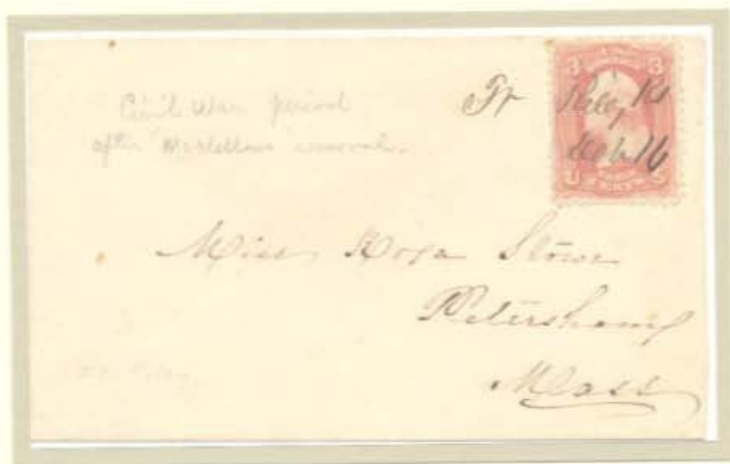 Civil War period
after McClellans removal.
Ft Riley Ks
Dec 16
3 3
Miss Rosa Stowe
Petersham
Mass